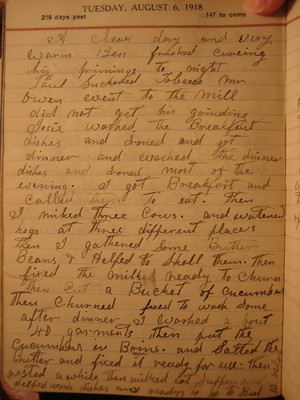 TUESDAY, AUGUST 6, 1918
218 days past
147 to come
A Clear day and very
warm Ben finished cureing
his primings to night
Paul Suckered Tobacco Mr
Owen went to the mill
did not get his grinding
Josie washed the Breakfast
dishes and Ironed and got
dinner and washed the dinner
dishes and Ironed most of the
evening. I got Breakfast and
Called to eat. Then
I milked three Cows. and watered
hogs at three different places
then I gathered Some Butter
Beans & Helped to Shell them. then
fixed the milk ready to Churn
then Cut a Bucket of Cucumbers
then Churned fixed to wash some
after dinner I washed
40 garments then put the
Cucumbers in Brine. and Salted the
Butter and fixed it ready for use. then
rested a while then milked eat Supper and
helped wash dishes and ready to go to Bed